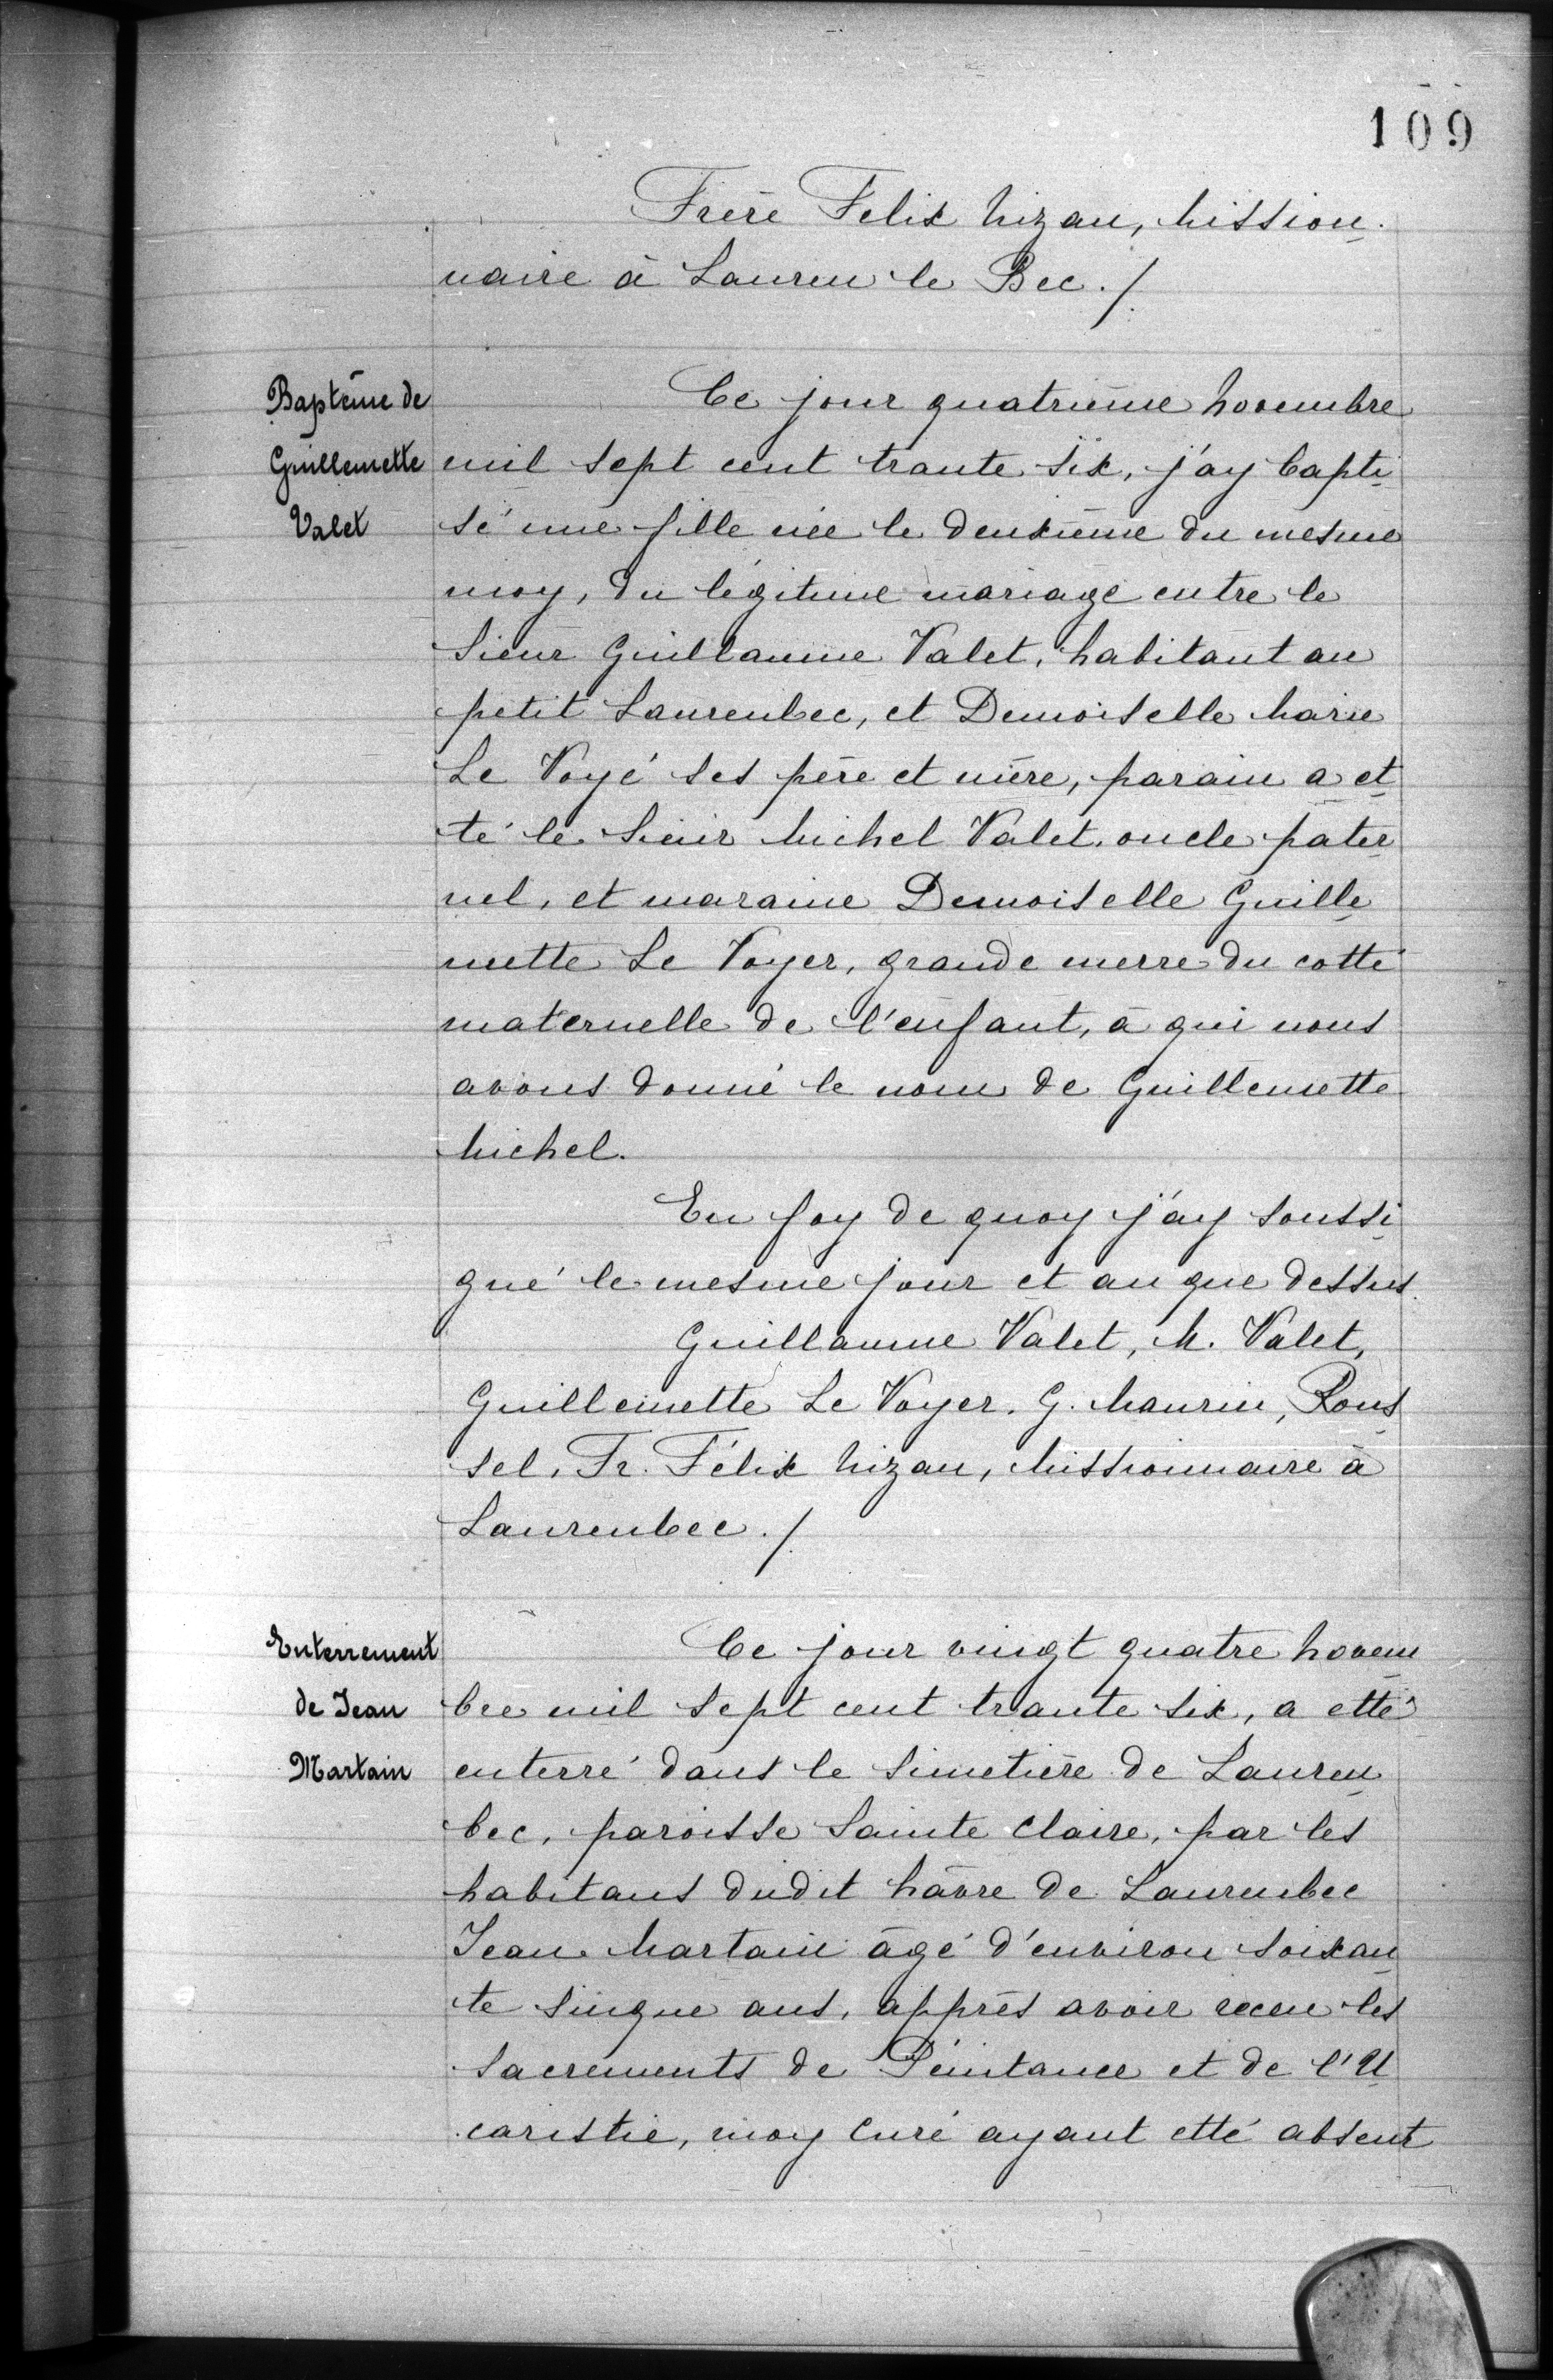 109
Frère Felix Nizan, Mission
naire à Lauren le Bec./.
Baptême de
Guillemette
Valet
Ce jour quatrième Novembre
mil sept cent trante six, j'ay bapti
sé une fille née le deuxième du mesme
moy, du légitime mariage entre le
Sieur Guillaume Valet, habitant au
petit Laurenbec, et Demoiselle Marie
Le Voyé ses père et mère, parain a et
té le Sieur Michel Valet, oncle pater
nel, et maraine Demoiselle Guille
mette Le Voyer, grande merre du cotté
maternelle de l'enfant, à qui nous
avons donné le nom de Guillemette
Michel.
En foy de quoy j'ay soussi
gné le mesme jour et an que dessus.
Guillaume Valet, M. Valet,
Guillemette Le Voyer, G. Maurin, Rous
sel, Fr. Félix Nizan, Missionnaire à
Laurenbec./.
Enterrement
de Jean
Martain
Ce jour vingt quatre Novem
bre mil sept cent trante six, a etté
enterré dans le simetière de Lauren
bec, paroisse Sainte Claire, par les
habitans dudit hâvre de Laurenbec
Jean Martain âgé d'environ soixan
te sinque ans, apprès avoir receu les
sacrements de Péintance et de l'U
caristie, moy Curé ayant etté absent